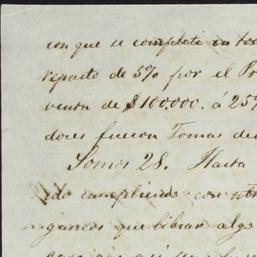 con que se complete in to
reparto de 5% por el Pr
venta de $100000. á 25%
dores fueron Tomas de
Somos 28. Hasta
ido cumpliendo con otr
que libran algo